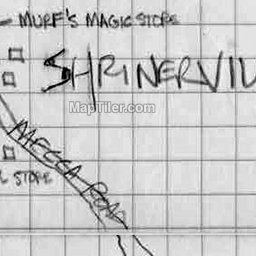 - MURF'S MAGIC STORE
SHRINERVIL
MapTiler.com
MECCA ROAD
L STORE